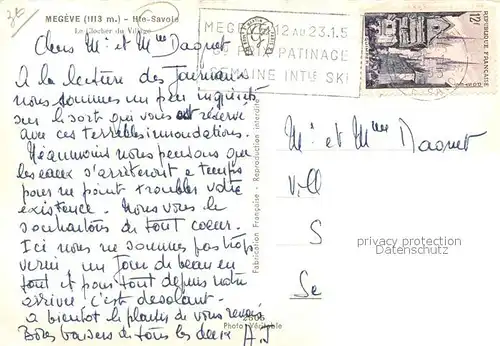 3E
MEGÈVE (1113 m.) - Hte-Savoie
Le Clocher du Village
MEGÈ 12 AU 23.1.5
PATINAGE
SEMAINE INTle SKI
12f
REPUBLIQUE FRANCAISE
Chers Mr et Mme Daquet
A la lecture des Journaux
nous sommes un peu inquiets
sur le sort qui vous est réservé
avec ces terribles inondations.
Néanmoins nous pensons que
les eaux s'arrêteront a temps
pour ne point troubler votre
existence. Nous vous le
souhaitons de tout coeur.
Ici nous ne sommes pas trop
vernis un Jour de beau en
tout et pour tout depuis notre
arrivée c'est désolant.
a bientôt le plaisir de vous revoir
Bons baisers de tous les deux A J
Fabrication Française - Reproduction interdite
2306
Photo Véritable
Mr et Mme Daquet
Vill
S
Se
privacy protection
Datenschutz